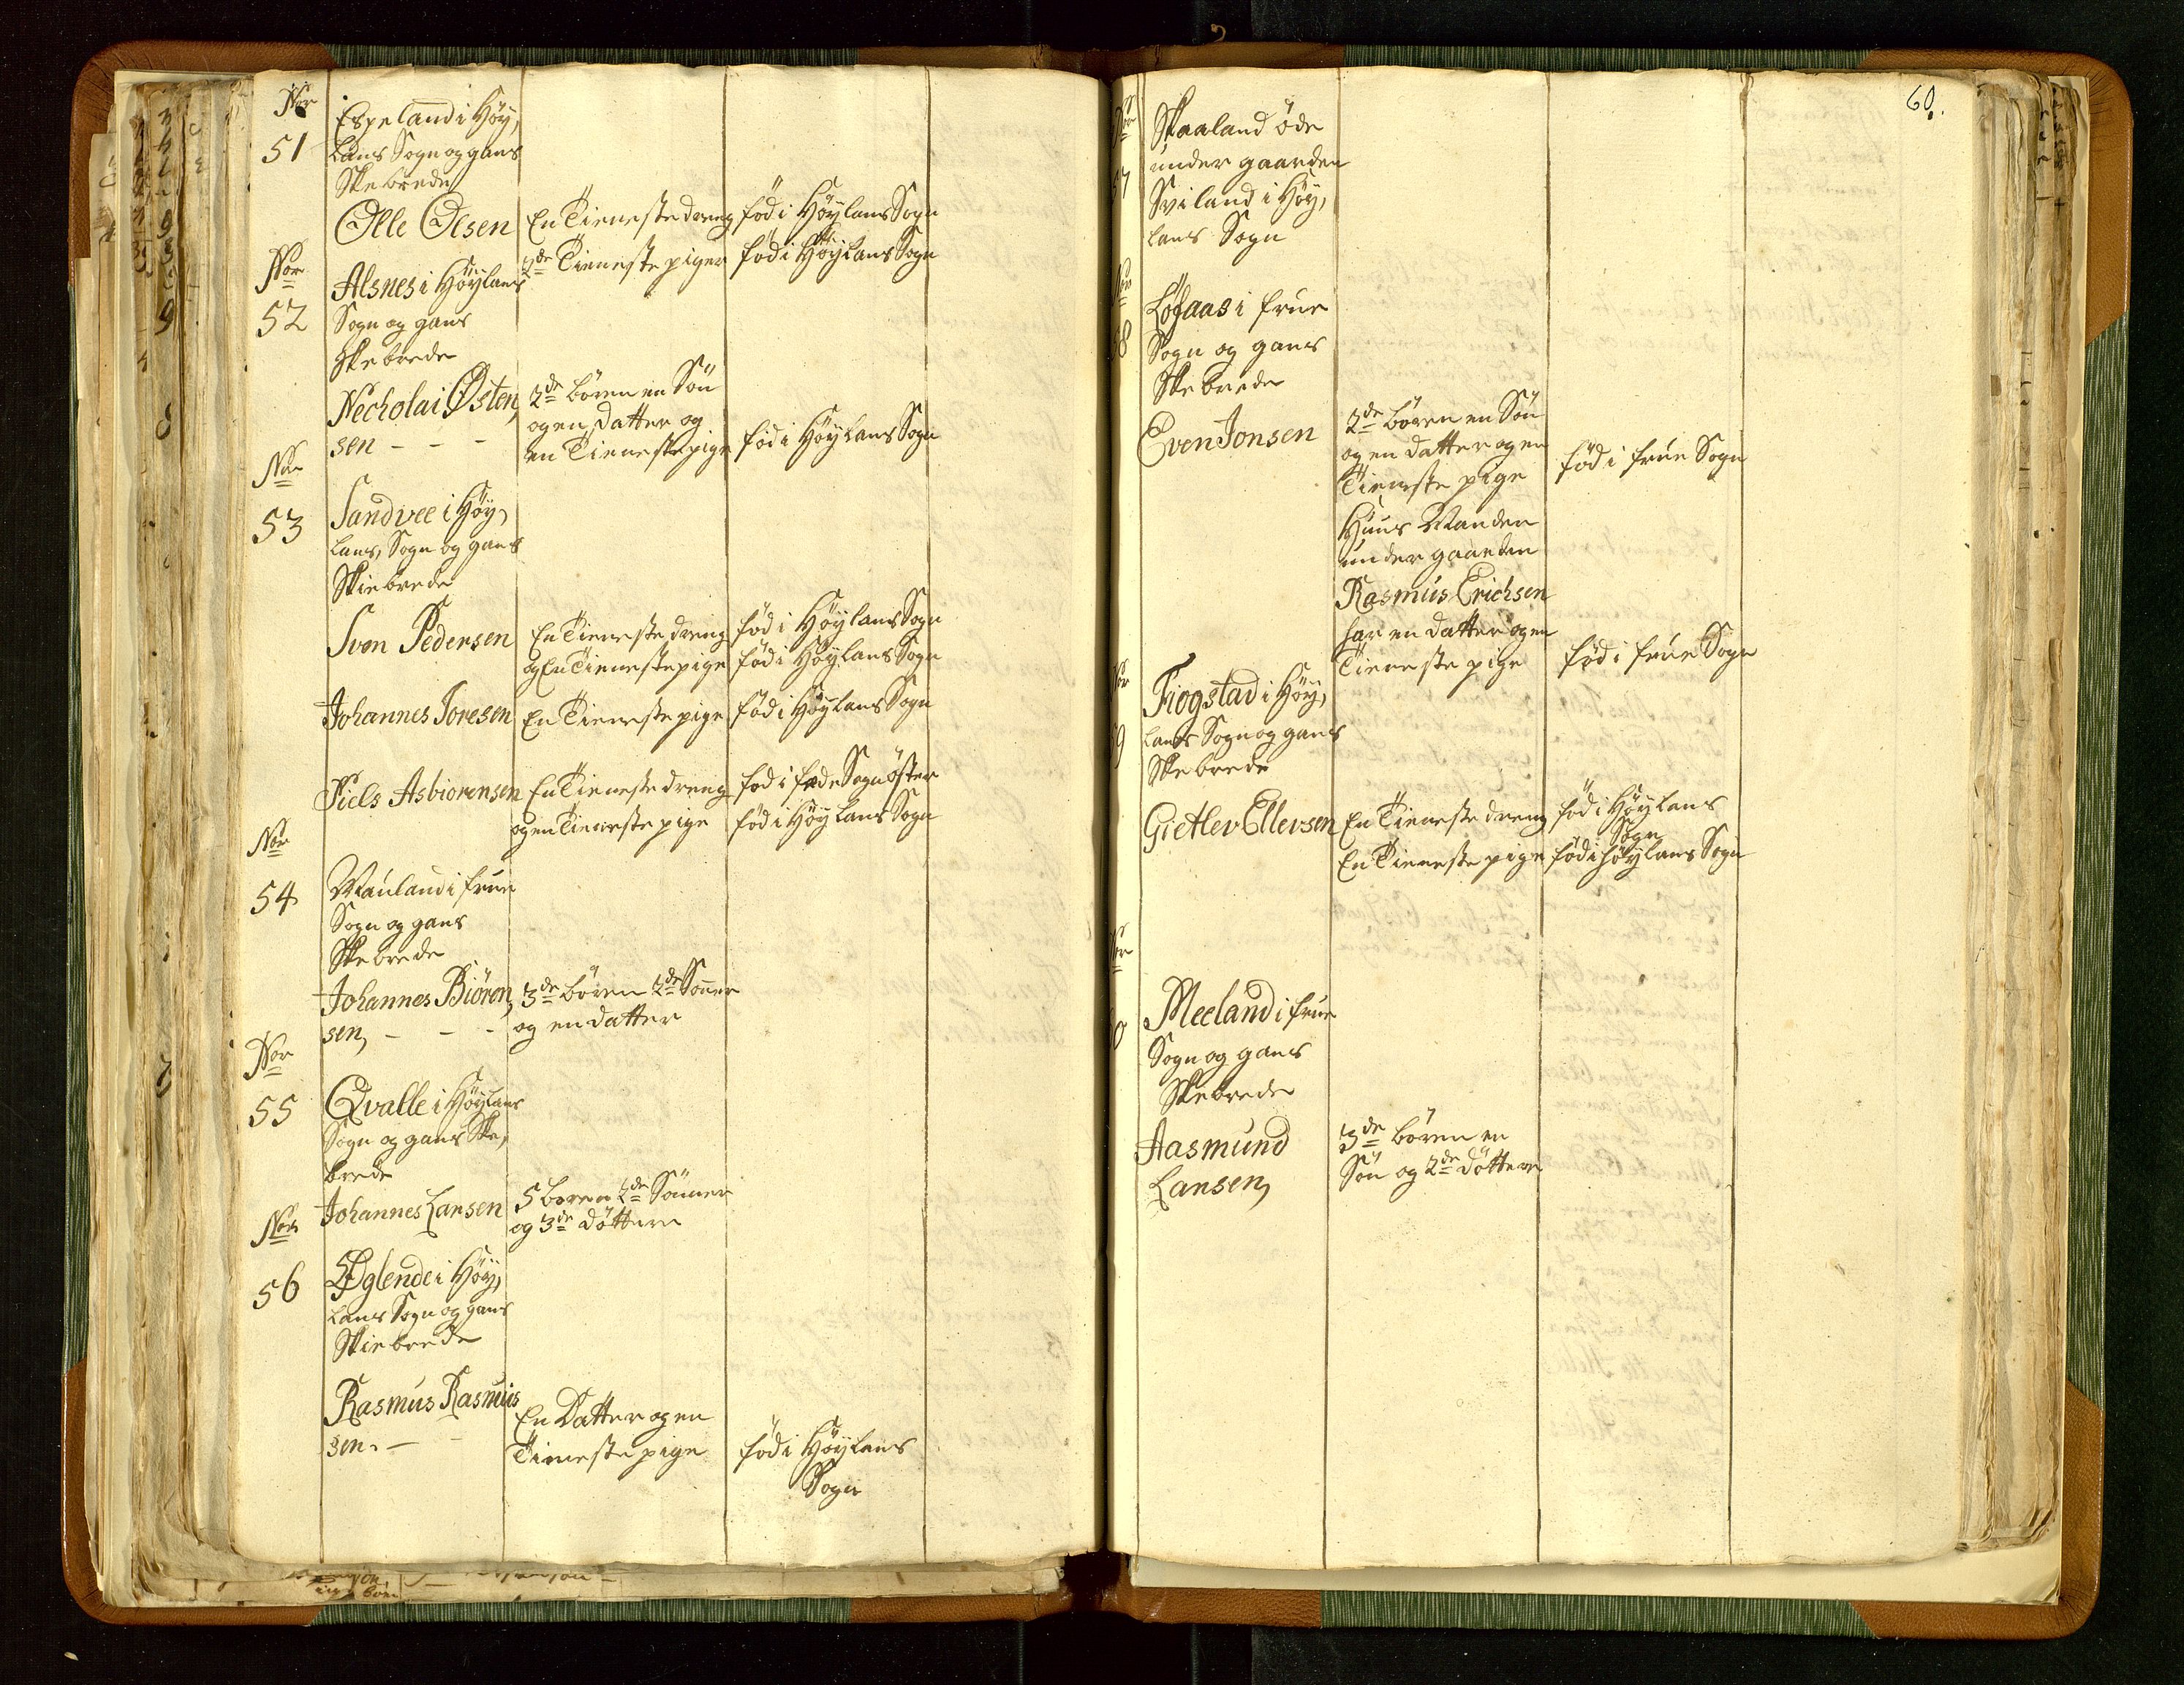 Nor
51
Espeland i Höy,
lans Sogn og gans
Skebrede
Olle Olsen En Tieneste dreng föd i Höylans Sogn
2de Tieneste piger föd i Höylans Sogn
Nor
52
Alsnes i Höylans
Sogn og gans
Skebrede
Necholai Østen,
sen - - -
2de börn en Sön
og en datter og
en Tieneste pige föd i Höylans Sogn
Nor
53
Sandvee i Höy,
lans, Sogn og gans
Skiebrede
Iven Pedersen En Tieneste dreng föd i Höylans Sogn
og En Tieneste pige föd i Höylans Sogn
Johannes Toresen En Tieneste pige föd i Höylans Sogn
Niels Asbiorensen En Tieneste dreng föd i Sogn öster
og en Tieneste pige föd i Höylans Sogn
Nor
54
Mauland i frue
Sogn og gans
Skebrede
Johannes Biören,
sen, - - -
3de börn 2de Sönner
og en datter
Nor
55
Qvalle i Höylans
Sogn og gans Ske,
brede
Johannes Larsen 5 börn 2de Sönner
og 3de döttere
Nor
56
Øglende i Höy,
lans Sogn og gans
Skiebrede
Rasmus Rasmus
sen. - -
En Datter og en
Tieneste pige föd i Höylans
Sogn
60.
Nor
57
Skaaland öde
under gaarden
Sviland i Höy,
lans Sogn
Nor
58
Lofaas i frue
Sogn og gans
Skebrede
Even Jonsen
2de börn en Sön
og en datter og en
Tieneste pige föd i frue Sogn
Huus Manden
under gaarden
Rasmus Erichsen
har en datter og en
Tieneste pige föd i frue Sogn
Nor
59
Fiogstad i Höy,
lands Sogn og gans
Skebrede
Gietlev Ellevsen En Tieneste dreng föd i Höylans
Sogn
En Tieneste pige föd i höylans Sogn
Nor
60
Meeland i frue
Sogn og gans
Skebrede
Aasmund
Larsen,
3de börn en
Sön og 2de döttere